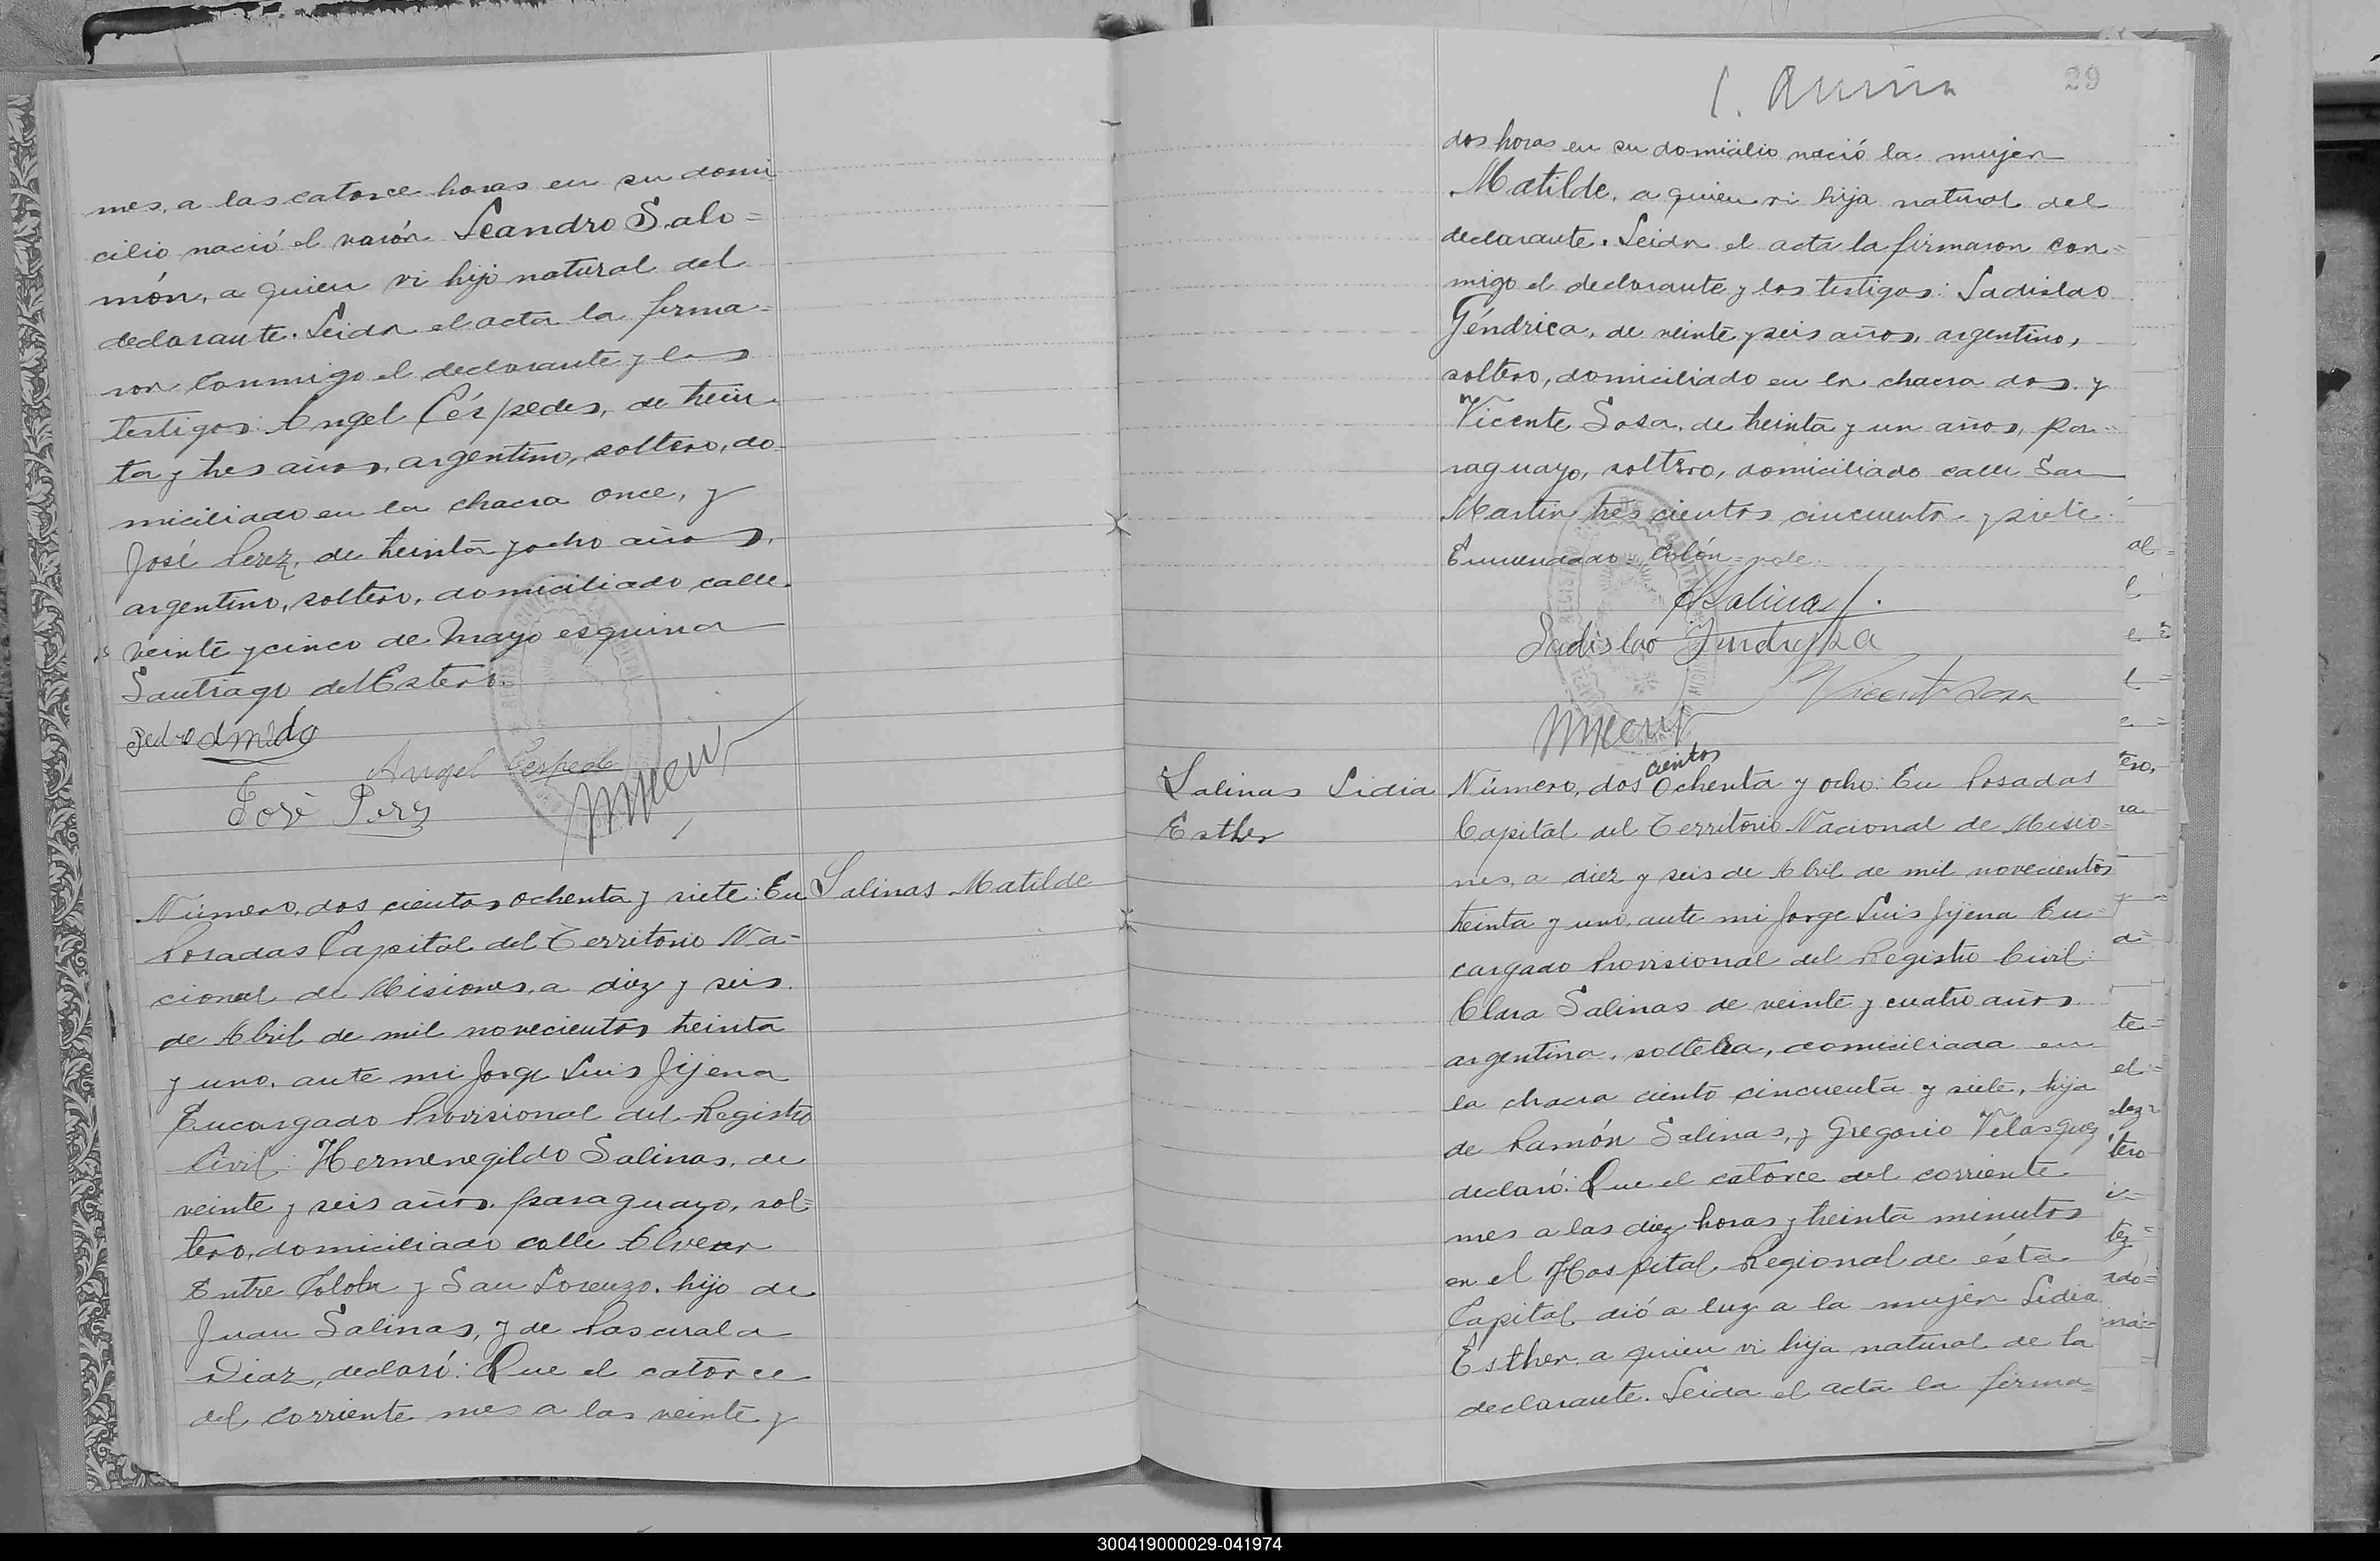 mes, a las catorce horas en su domi
cilio nació el varón Leandro Salo=
món, a quien vi hijo natural del
declarante. Leida el acta la firma=
ron conmigo el declarante y los
testigos: Angel Céspedes, de trein
ta y tres años, argentino, soltero, do
miciliado en la chacra once, y
José Perez, de treinta y ocho años,
argentino, soltero, domiciliado calle
veinte y cinco de Mayo esquina
Santiago del Estero.
Pedro
Angel Cespede
José Perz
Número, dos cientos ochenta y siete: En
Posadas Capital del Territorio Na-
cional de Misiones, a diez y seis
de Abril de mil novecientos treinta
y uno, ante mi Jorge Luis Jijena
Encargado Provisional del Registro
Civil: Hermenegildo Salinas, de
veinte y seis años, paraguayo, sol=
tero, domiciliado calle Alvear
Entre Colón y San Lorenzo, hijo de
Juan Salinas, y de Pascuala
Diaz, declaró: Que el catorce
del corriente mes a las veinte y
Salinas Matilde
29
dos horas en su domicilio nació la mujer
Matilde, a quien vi hija natural del
declarante. Leida el acta la firmaron con=
migo el declarante y los testigos: Ladislao
Géndrica, de veinte y seis años, argentino,
soltero, domiciliado en la chacra dos y
Vicente Sosa, de treinta y un años, pa=
raguayo, soltero, domiciliado calle San
Martin tres cientos cincuenta y siete.
Enmendado Colón=vale.
HSalinas.
Ladislao
Vicente Sosa
Salinas Lidia
Esther
cientos
Número, dos Ochenta y ocho: En Posadas
Capital del Territorio Nacional de Misio=
nes, a diez y seis de Abril de mil novecientos
treinta y uno, ante mi Jorge Luis Jijena En=
cargado Provisional del Registro Civil:
Clara Salinas de veinte y cuatro años
argentina, soltera, domiciliada en
la chacra ciento cincuenta y siete, hija
de Ramón Salinas, y Gregorio Velasquez
declaró: Que el catorce del corriente
mes a las diez horas y treinta minutos
en el Hospital Regional de ésta
Capital dió a luz a la mujer Lidia
Esther, a quien vi hija natural de la
declarante. Leida el acta la firma=
300419000029-041974